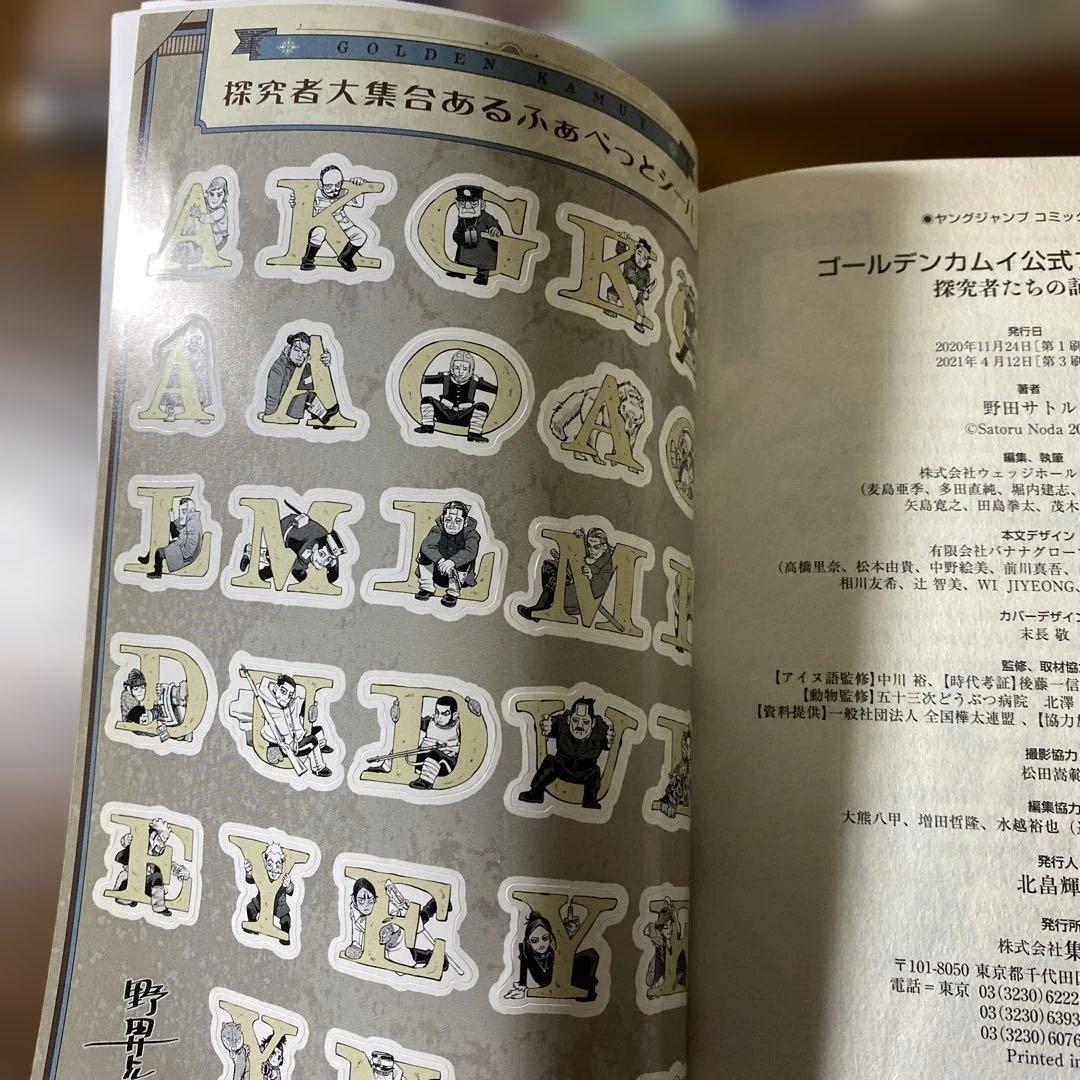 GOLDEN KAMUY
探究者大集合あるふぁべっとシール
A K G K
A A O A
L M L M
D U D U
E Y E Y
Y
野田サトル
●ヤングジャンプ コミック
ゴールデンカムイ公式
探究者たちの記
発行日
2020年11月24日[第1刷
2021年4月12日[第3刷
著者
野田サトル
©Satoru Noda 20
編集、執筆
株式会社ウェッジホール
(麦島亜季、多田直純、堀内建志、
矢島寛之、田島拳太、茂木
本文デザイン
有限会社バナナグロー
(高橋里奈、松本由貴、中野絵美、前川真吾、
相川友希、辻 智美、WI JIYEONG、
カバーデザイン
末長 敬
監修、取材協力
【アイヌ語監修】中川 裕、【時代考証】後藤一信
【動物監修】五十三次どうぶつ病院 北澤
【資料提供】一般社団法人 全国樺太連盟、【協力
撮影協力
松田嵩範
編集協力
大熊八甲、増田哲隆、水越裕也
発行人
北畠輝
発行所
株式会社集
〒101-8050 東京都千代田区
電話=東京 03(3230)6222
03(3230)6393
03(3230)6076
Printed in